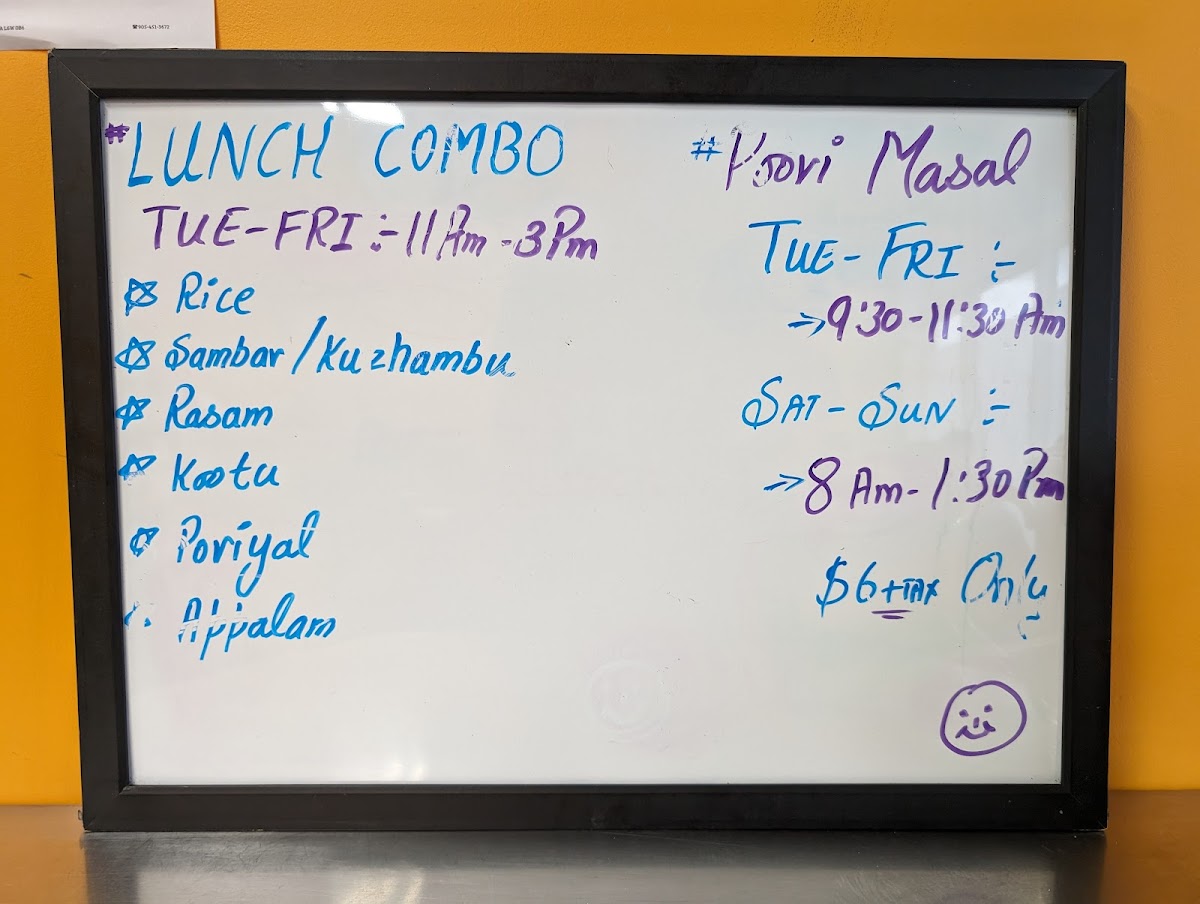 R L6W 0B4
☎905-451-3672
#LUNCH COMBO
TUE-FRI :- 11Am - 3Pm
Rice
Sambar/Kuzhambu
Rasam
Kootu
Poriyal
Appalam
#Poori Masal
TUE-FRI :-
→ 9:30-11:30 Am
SAT-SUN :-
→ 8 Am-1:30 Pm
$6+TAX Only